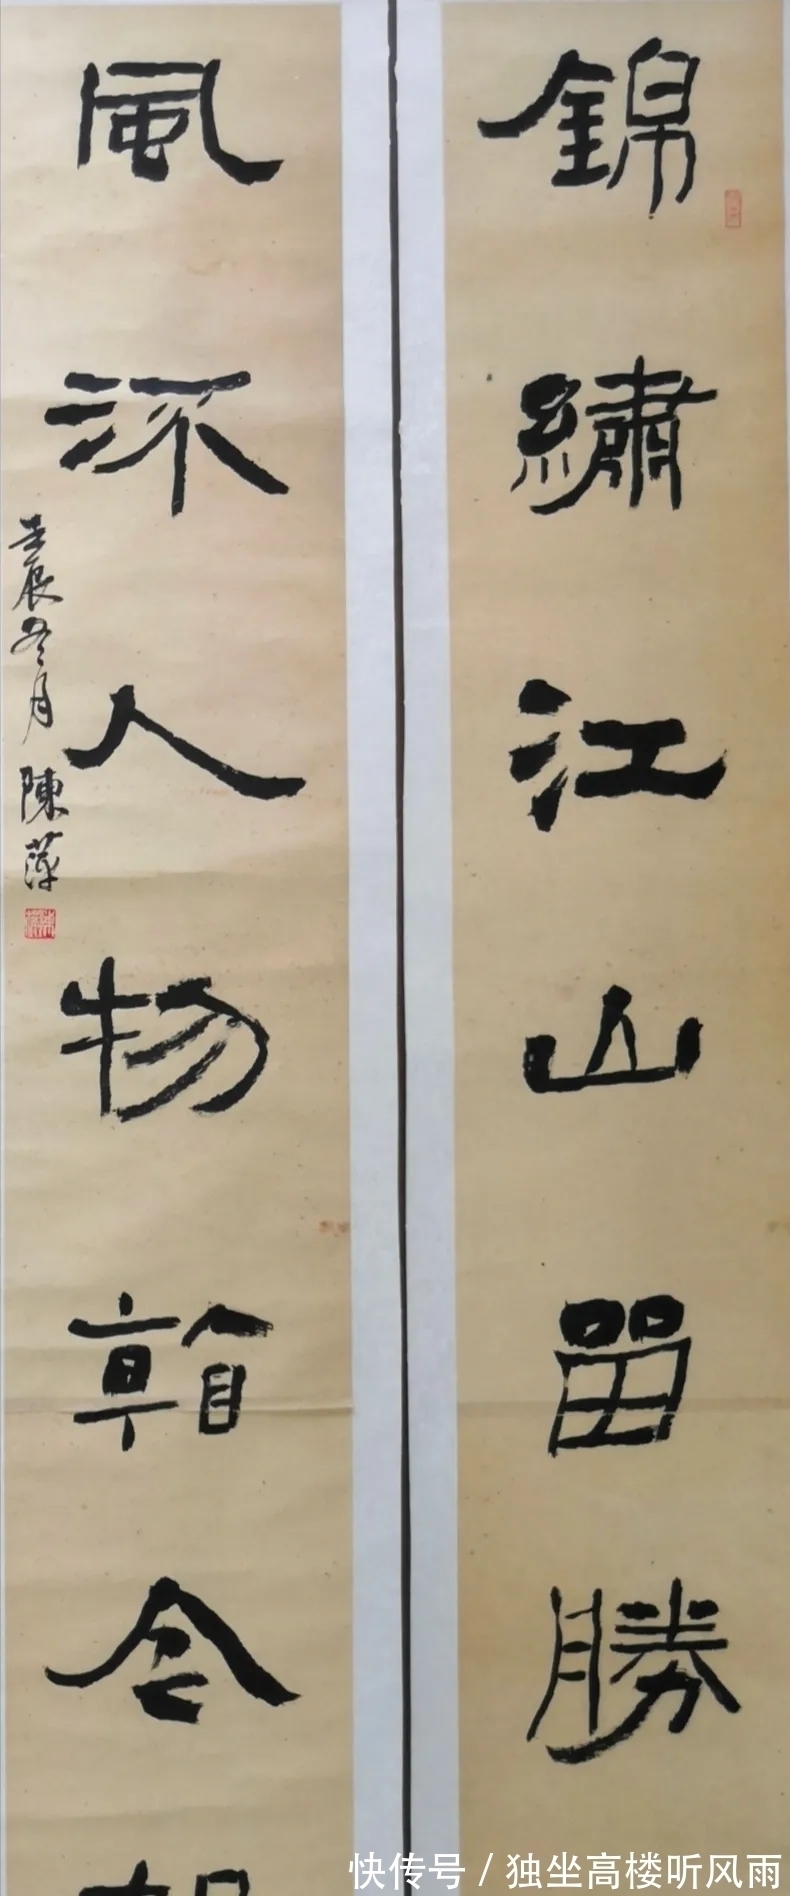 錦繡江山留勝
風流人物看今
壬辰冬月 陳萍
快传号 / 独坐高楼听风雨